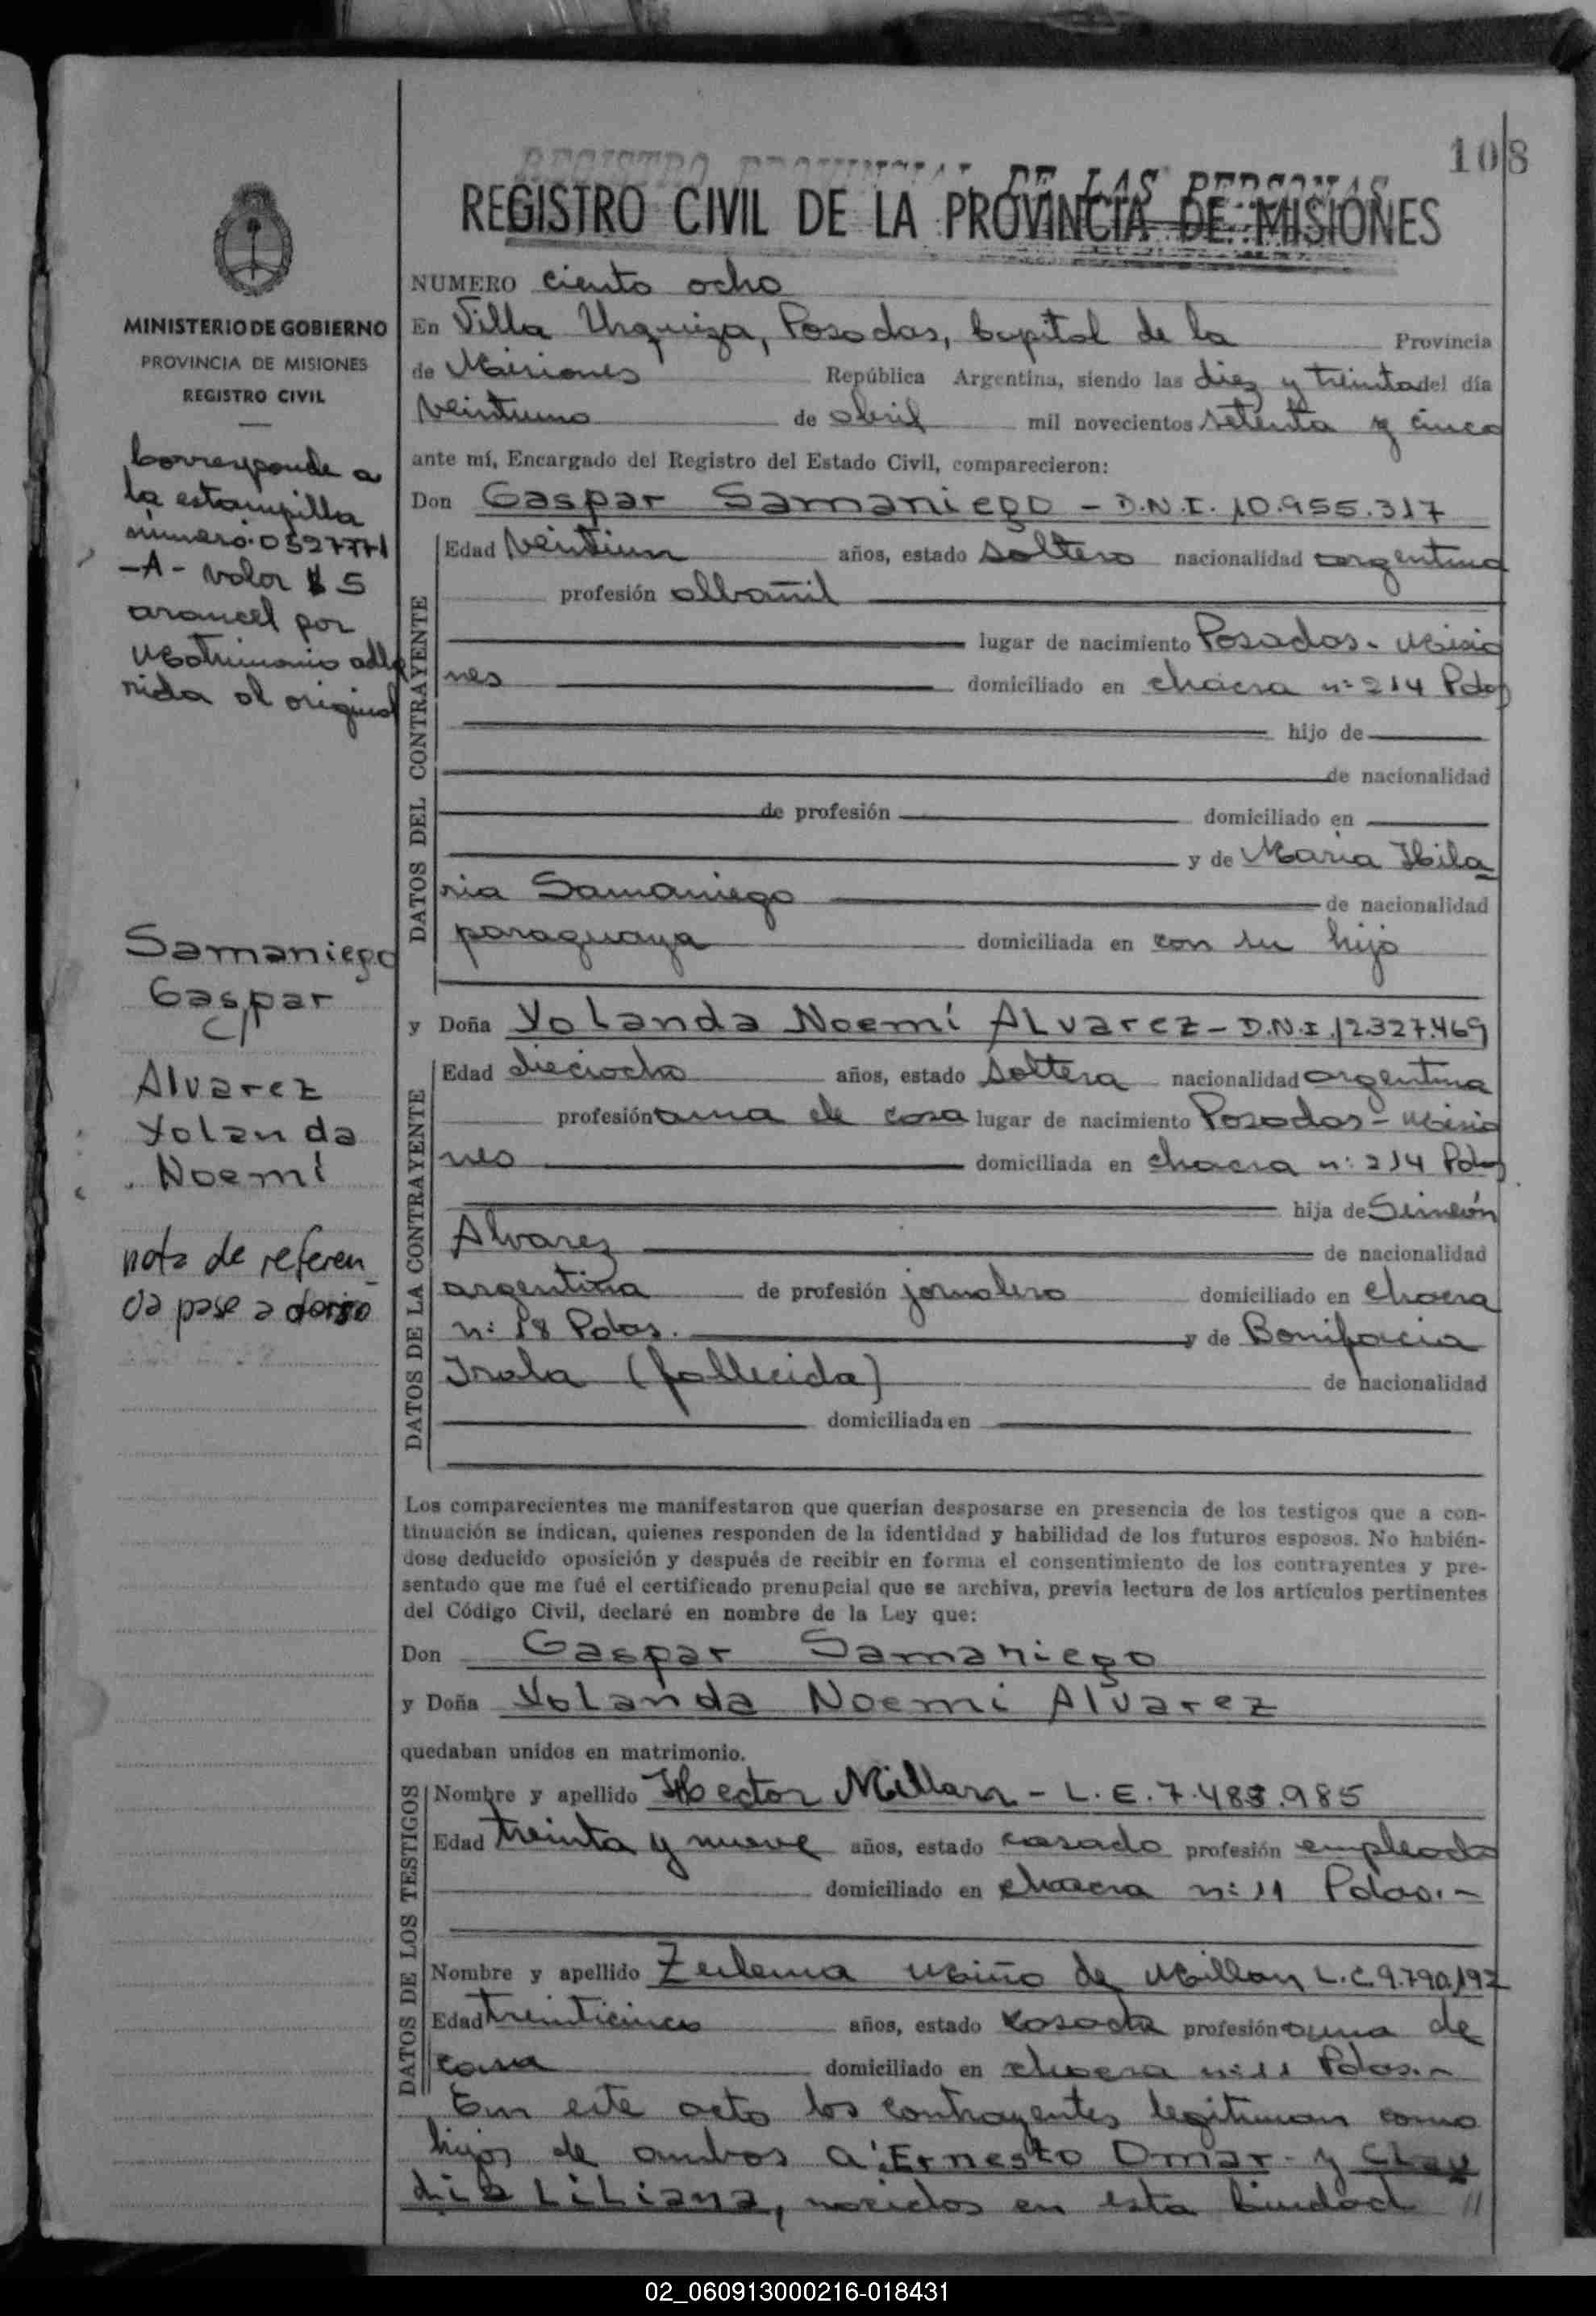 108
REGISTRO PROVINCIAL DE LAS PERSONAS
REGISTRO CIVIL DE LA PROVINCIA DE MISIONES
MINISTERIO DE GOBIERNO
PROVINCIA DE MISIONES
REGISTRO CIVIL
Corresponde a
la estampilla
número 0527771
-A- valor $ 5
arancel por
Matrimonio adhe
rida al original
Samaniego
Gaspar
c/
Alvarez
Yolanda
Noemí
nota de referen
cia pase a dorso
NUMERO ciento ocho
En Villa Urquiza, Posadas, Capital de la Provincia
de Misiones República Argentina, siendo las diez y treinta del día
veintiuno de abril mil novecientos setenta y cinco
ante mí, Encargado del Registro del Estado Civil, comparecieron:
Don Gaspar Samaniego - D.N.I. 10.955.317
DATOS DEL CONTRAYENTE
Edad veintiun años, estado soltero nacionalidad argentina
profesión albañil
lugar de nacimiento Posadas - Misio
nes domiciliado en chacra n: 214 Pdas
hijo de
de nacionalidad
de profesión domiciliado en
y de Maria Hila-
ria Samaniego de nacionalidad
paraguaya domiciliada en con su hijo
y Doña Yolanda Noemí Alvarez - D.N.I. 12.327.469
DATOS DE LA CONTRAYENTE
Edad dieciocho años, estado soltera nacionalidad argentina
profesión ama de casa lugar de nacimiento Posadas - Misio
nes domiciliada en chacra n: 214 Pdas
hija de Simeón
Alvarez de nacionalidad
argentina de profesión jornalero domiciliado en chacra
n: 18 Pdas. y de Bonifacia
Irala (fallecida) de nacionalidad
domiciliada en
Los comparecientes me manifestaron que querían desposarse en presencia de los testigos que a con-
tinuación se indican, quienes responden de la identidad y habilidad de los futuros esposos. No habién-
dose deducido oposición y después de recibir en forma el consentimiento de los contrayentes y pre-
sentado que me fué el certificado prenupcial que se archiva, previa lectura de los artículos pertinentes
del Código Civil, declaré en nombre de la Ley que:
Don Gaspar Samaniego
y Doña Yolanda Noemi Alvarez
quedaban unidos en matrimonio.
DATOS DE LOS TESTIGOS
Nombre y apellido Hector Millan - L.E. 7.483.985
Edad treinta y nueve años, estado casado profesión empleado
domiciliado en chacra n: 11 Pdas.-
Nombre y apellido Zulema Miño de Millan L.C. 9.790.197
Edad treinticinco años, estado casada profesión ama de
casa domiciliado en chacra n: 11 Pdas.-
En este acto los contrayentes legitiman como
hijos de ambos a: Ernesto Omar y Clau
dia Liliana, nacidos en esta Ciudad //
02_060913000216-018431